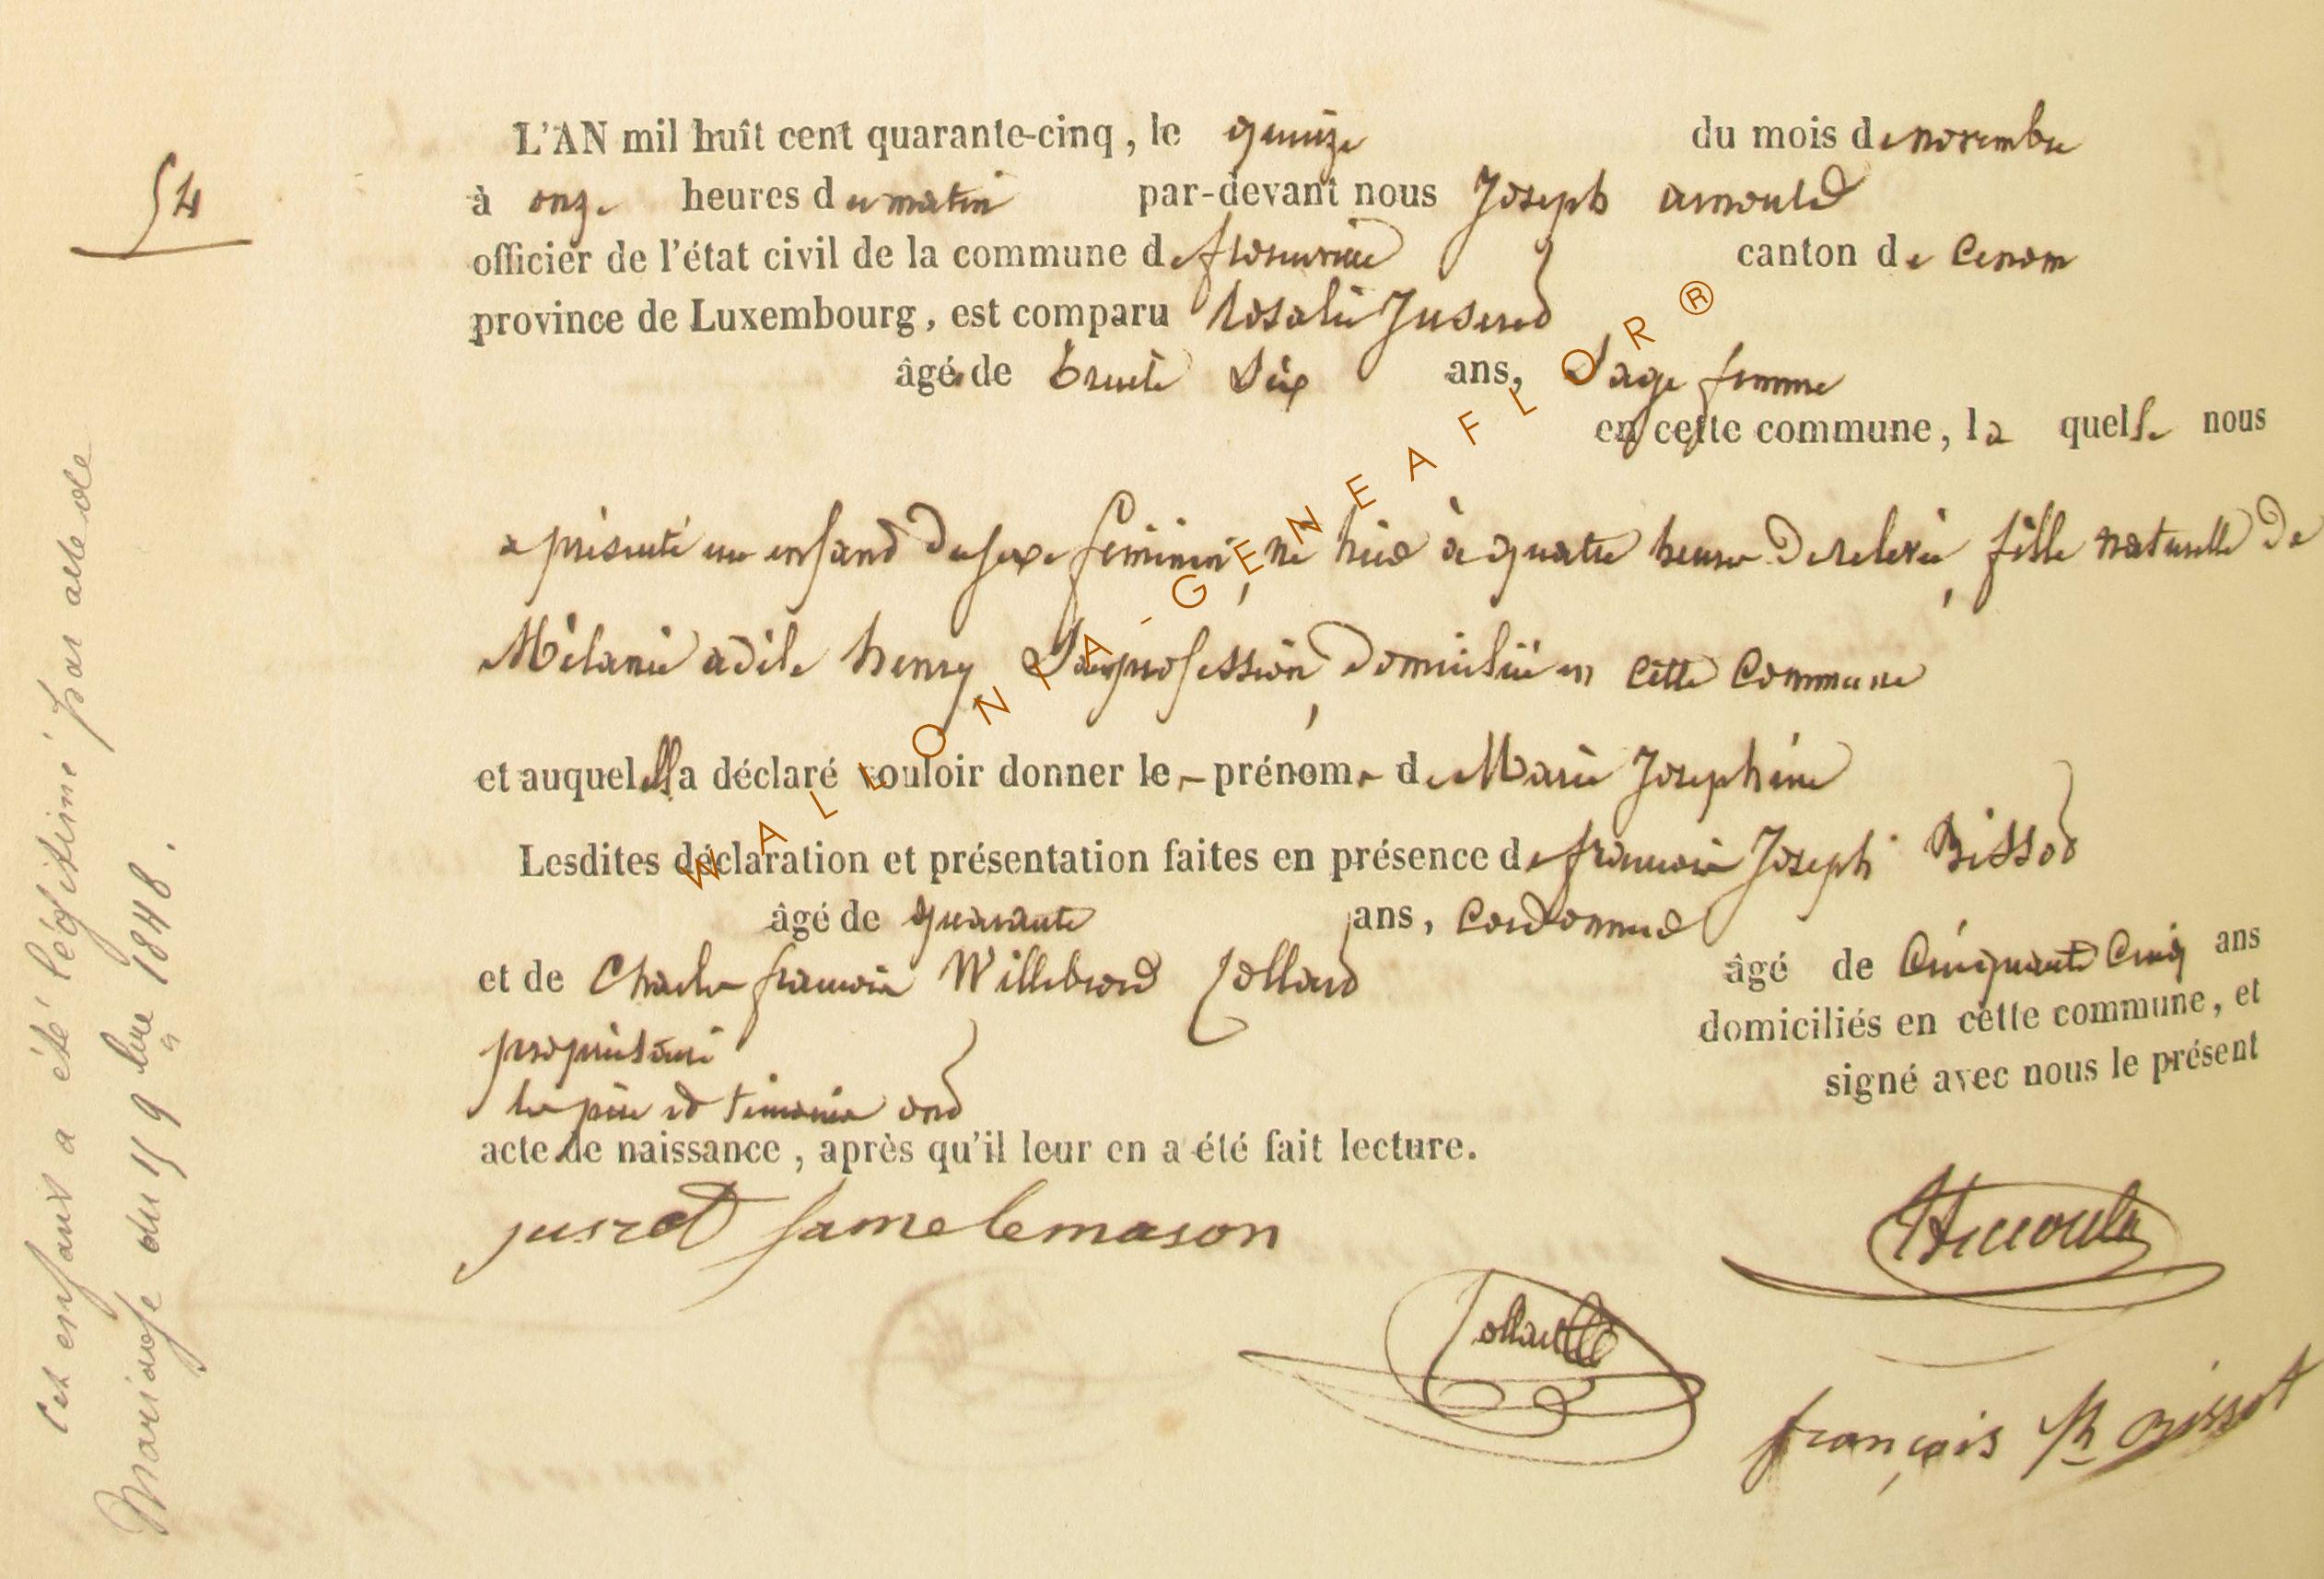 54
L'AN mil huît cent quarante-cinq, le quinze du mois de novembre
à onze heures du matin par-devant nous Joseph arnould
officier de l'état civil de la commune de florenville canton de
province de Luxembourg, est comparu Rosalie Juseret
âgé de trente Six ans, Sage femme
en cette commune, la quelle nous
a présenté un enfant du sexe féminin, né hier à quatre heures de relevée, fille naturelle de
Mélanie adèle henry Sans profession, domiciliée en cette Commune
et auquel elle a déclaré vouloir donner le prénom de Marie Joséphine
Lesdites déclaration et présentation faites en présence de françois Joseph Bissot
âgé de quarante ans, Cordonnier
et de Charles françois Willebrord Collard âgé de Cinquante Cinq ans
propriétaire domiciliés en cette commune, et
les père et témoins ont signé avec nous le présent
acte de naissance, après qu'il leur en a été fait lecture.
jusret fame lemason
Collard
françois Jh Bissot
Cet enfant a été légitimé par acte de
Mariage du 15 9bre 1848.
WALLONIA-GENEAFLOR®